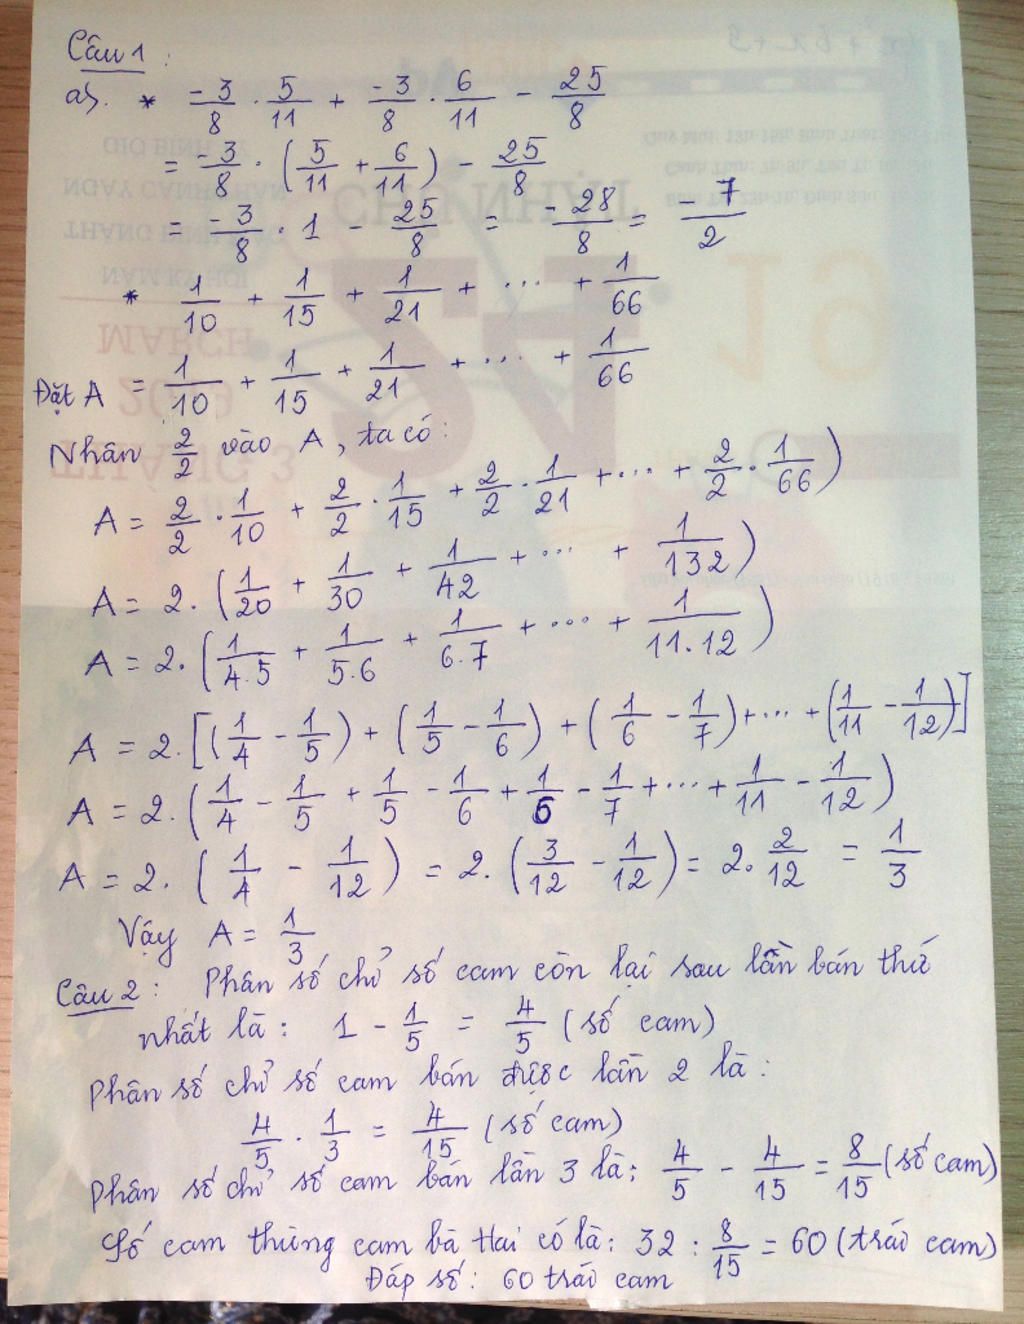 Câu 1:
a). * -3/8 . 5/11 + -3/8 . 6/11 - 25/8
= -3/8 . (5/11 + 6/11) - 25/8
= -3/8 . 1 - 25/8 = -28/8 = 7/2
* 1/10 + 1/15 + 1/21 + ... + 1/66
Đặt A = 1/10 + 1/15 + 1/21 + ... + 1/66
Nhân 2/2 vào A, ta có:
A = 2/2 . 1/10 + 2/2 . 1/15 + 2/2 . 1/21 + ... + 2/2 . 1/66)
A = 2. (1/20 + 1/30 + 1/42 + ... + 1/132)
A = 2. (1/4.5 + 1/5.6 + 1/6.7 + ... + 1/11.12)
A = 2. [(1/4 - 1/5) + (1/5 - 1/6) + (1/6 - 1/7) + ... + (1/11 - 1/12)]
A = 2. (1/4 - 1/5 + 1/5 - 1/6 + 1/6 - 1/7 + ... + 1/11 - 1/12)
A = 2. (1/4 - 1/12) = 2. (3/12 - 1/12) = 2. 2/12 = 1/3
Vậy A = 1/3
Câu 2: Phân số chỉ số cam còn lại sau lần bán thứ
nhất là: 1 - 1/5 = 4/5 (số cam)
Phân số chỉ số cam bán được lần 2 là:
4/5 . 1/3 = 4/15 (số cam)
Phân số chỉ số cam bán lần 3 là: 4/5 - 4/15 = 8/15 (số cam)
Số cam thùng cam bà Hai có là: 32 : 8/15 = 60 (trái cam)
Đáp số: 60 trái cam